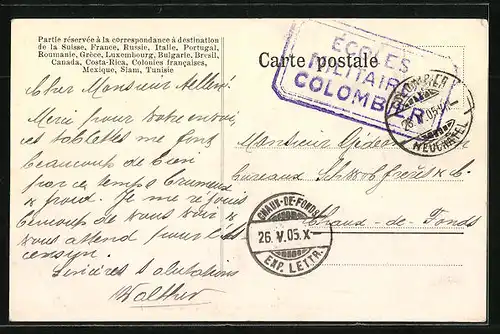 Partie réservée à la correspondance à destination
de la Suisse, France, Russie, Italie, Portugal,
Roumanie, Grèce, Luxembourg, Bulgarie, Bresil,
Canada, Costa-Rica, Colonies françaises,
Mexique, Siam, Tunisie
Carte postale
ÉCOLES
MILITAIRES
COLOMBIER
COLOMBIER
V.05
(NEUCHÂTEL)
Cher Monsieur
Merci pour votre envoi,
ces tablettes me font
beaucoup de bien
par ce temps brumeux
& froid. Je me réjouis
beaucoup de vous voir &
vous attend pour
Sincères salutations
Walther
Monsieur Gédéon
bureaux Schwob frères & Co.
Chaux-de-Fonds
CHAUX-DE-FONDS
26.V.05.X—
EXP. LETTR.